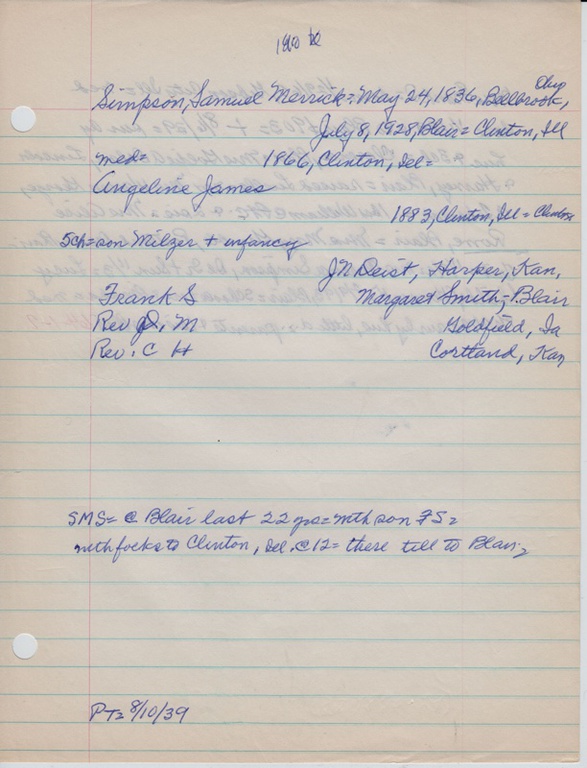 Simpson, Samuel Merrick = May 24, 1836, Bellbrook,
July 8, 1928, Blair = Clinton, Ill
med= 1866, Clinton, Ill=
Angeline James
1883, Clinton, Ill = Clinton
5ch = son Milzer + infancy
J N Deist, Harper, Kan,
Frank S Margaret Smith, Blair
Rev D. M Goldfield, Ia
Rev. C H Cortland, Kan
SMS = @ Blair last 22 yrs = with son FS =
with focks to Clinton, Ill. @ 12 = there till to Blair =
PT = 8/10/39